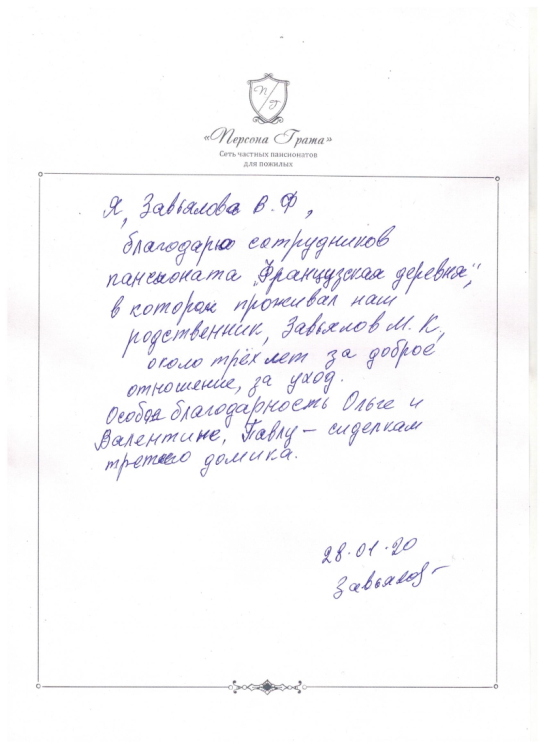 П/Г
«Персона Грата»
Сеть частных пансионатов
для пожилых
Я, Завьялова В. Ф,
благодарю сотрудников
пансионата „Французская деревня“,
в котором проживал наш
родственник, Завьялов М. К,
около трёх лет за доброе
отношение, за уход.
Особая благодарность Ольге и
Валентине, Павлу – сиделкам
третьего домика.
28.01.20
Завьялов